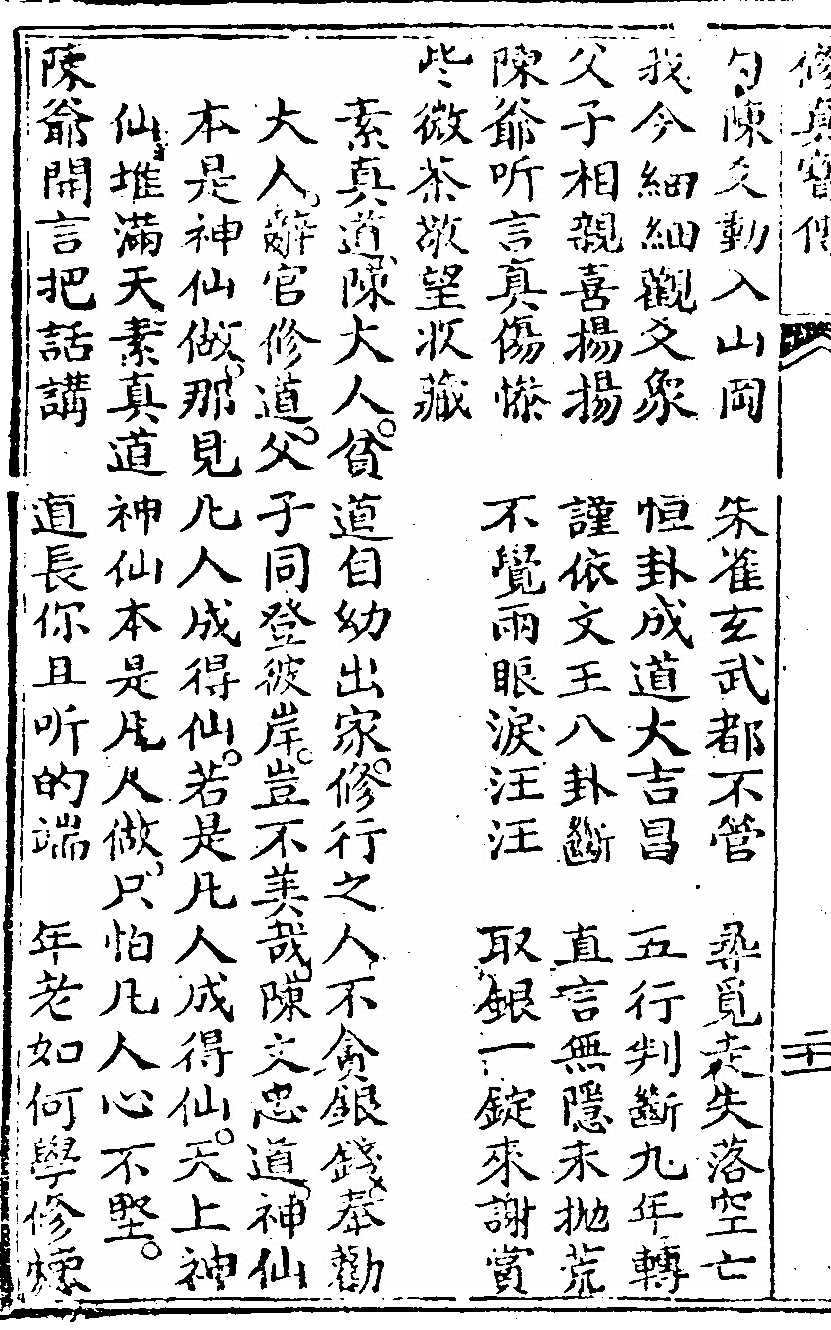 修真寶傳
二十一
勾陳爻動入山岡　朱雀玄武都不管　尋覓走失落空亡
我今細細觀爻象　恒卦成道大吉昌　五行判斷九年轉
父子相親喜揚揚　謹依文王八卦斷　直言無隱未拋荒
陳爺听言真傷慘　不覺兩眼淚汪汪　取銀一錠來謝賞
些微茶敬望收藏
素真道陳大人。貧道自幼出家。修行之人不貪銀錢。奉勸
大人。辭官修道。父子同登彼岸。豈不美哉。陳文忠道。神仙
本是神仙做。那見凡人成得仙。若是凡人成得仙。天上神
仙堆滿天。素真道神仙本是凡人做。只怕凡人心不堅。
陳爺開言把話講　道長你且听的端　年老如何學修煉